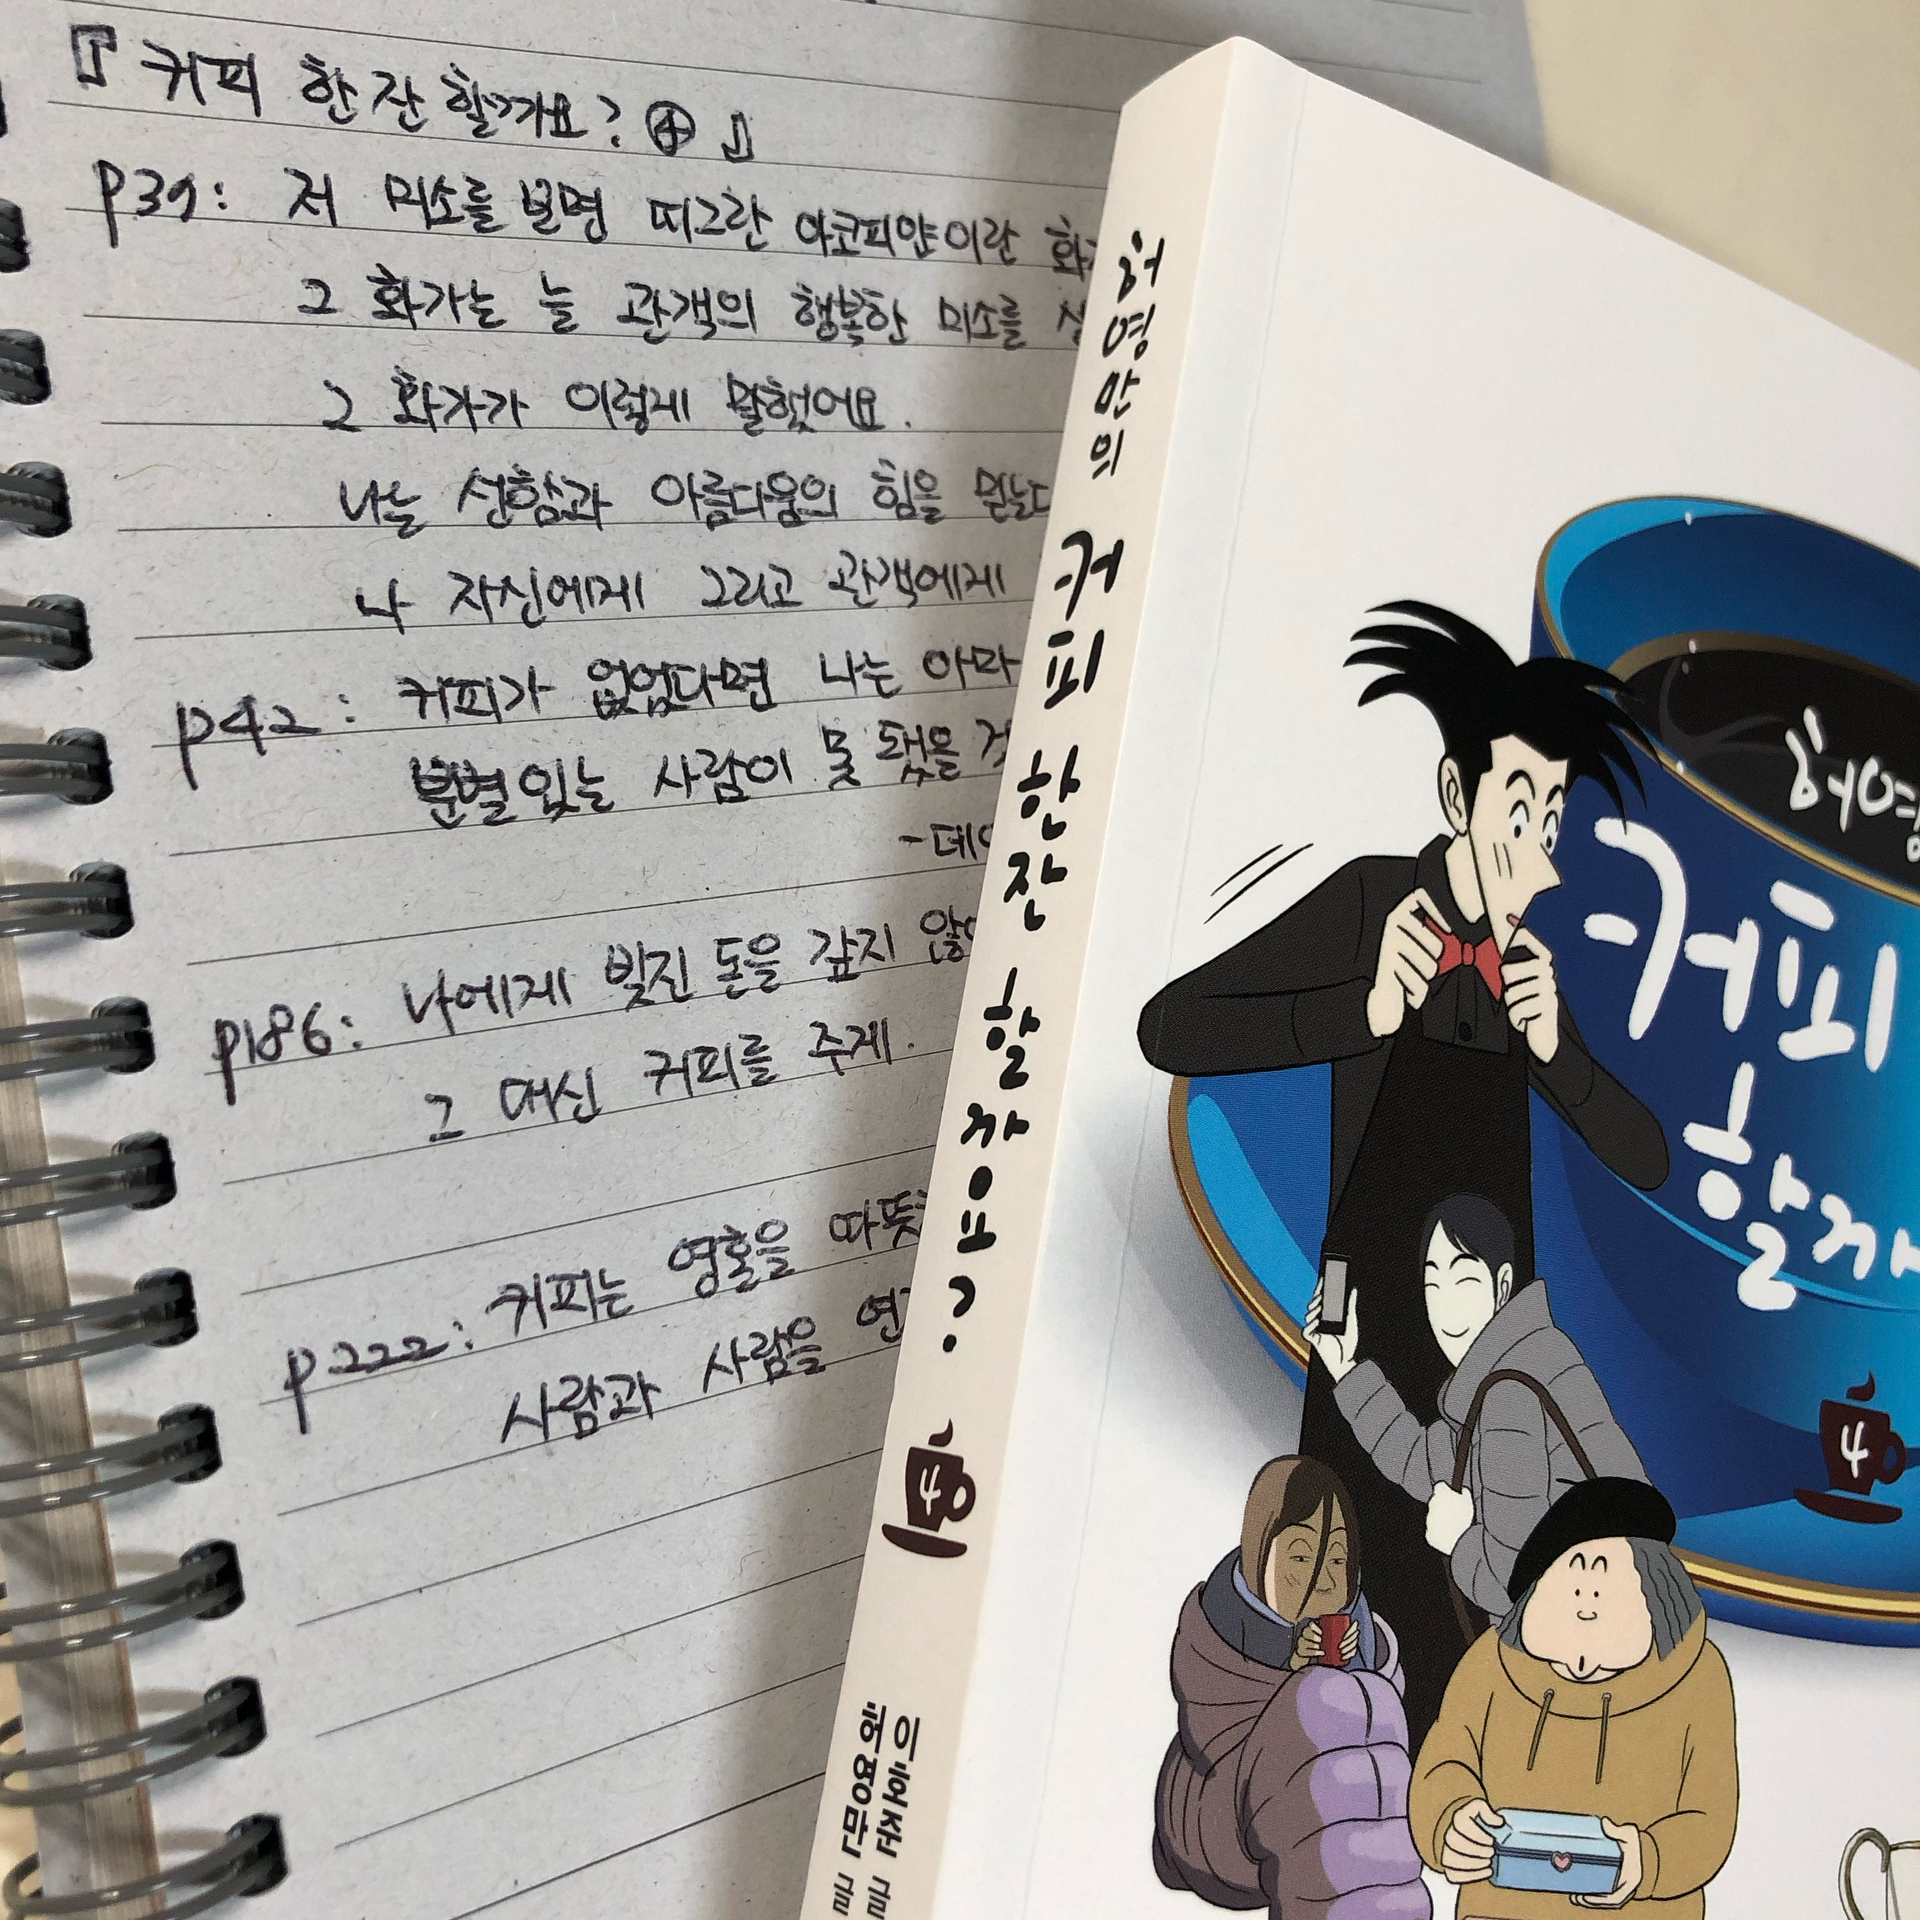 『커피 한 잔 할까요? ④』
p39: 저 미소를 보면 띠그란 아코피얀이란
그 화가는 늘 관객의 행복한 미소를
그 화가가 이렇게 말했어요.
나는 선함과 아름다움의 힘을 믿는다
나 자신에게 그리고 관객에게
p42: 커피가 없었다면 나는 아마
분별있는 사람이 못 됐을
p186: 나에게 빚진 돈을 갚지
그 대신 커피를 주게.
p222: 커피는 영혼을
사람과 사람을
허영만의 커피 한 잔 할까요? 4
이호준 글
허영만 글
허영
커피
할까
4